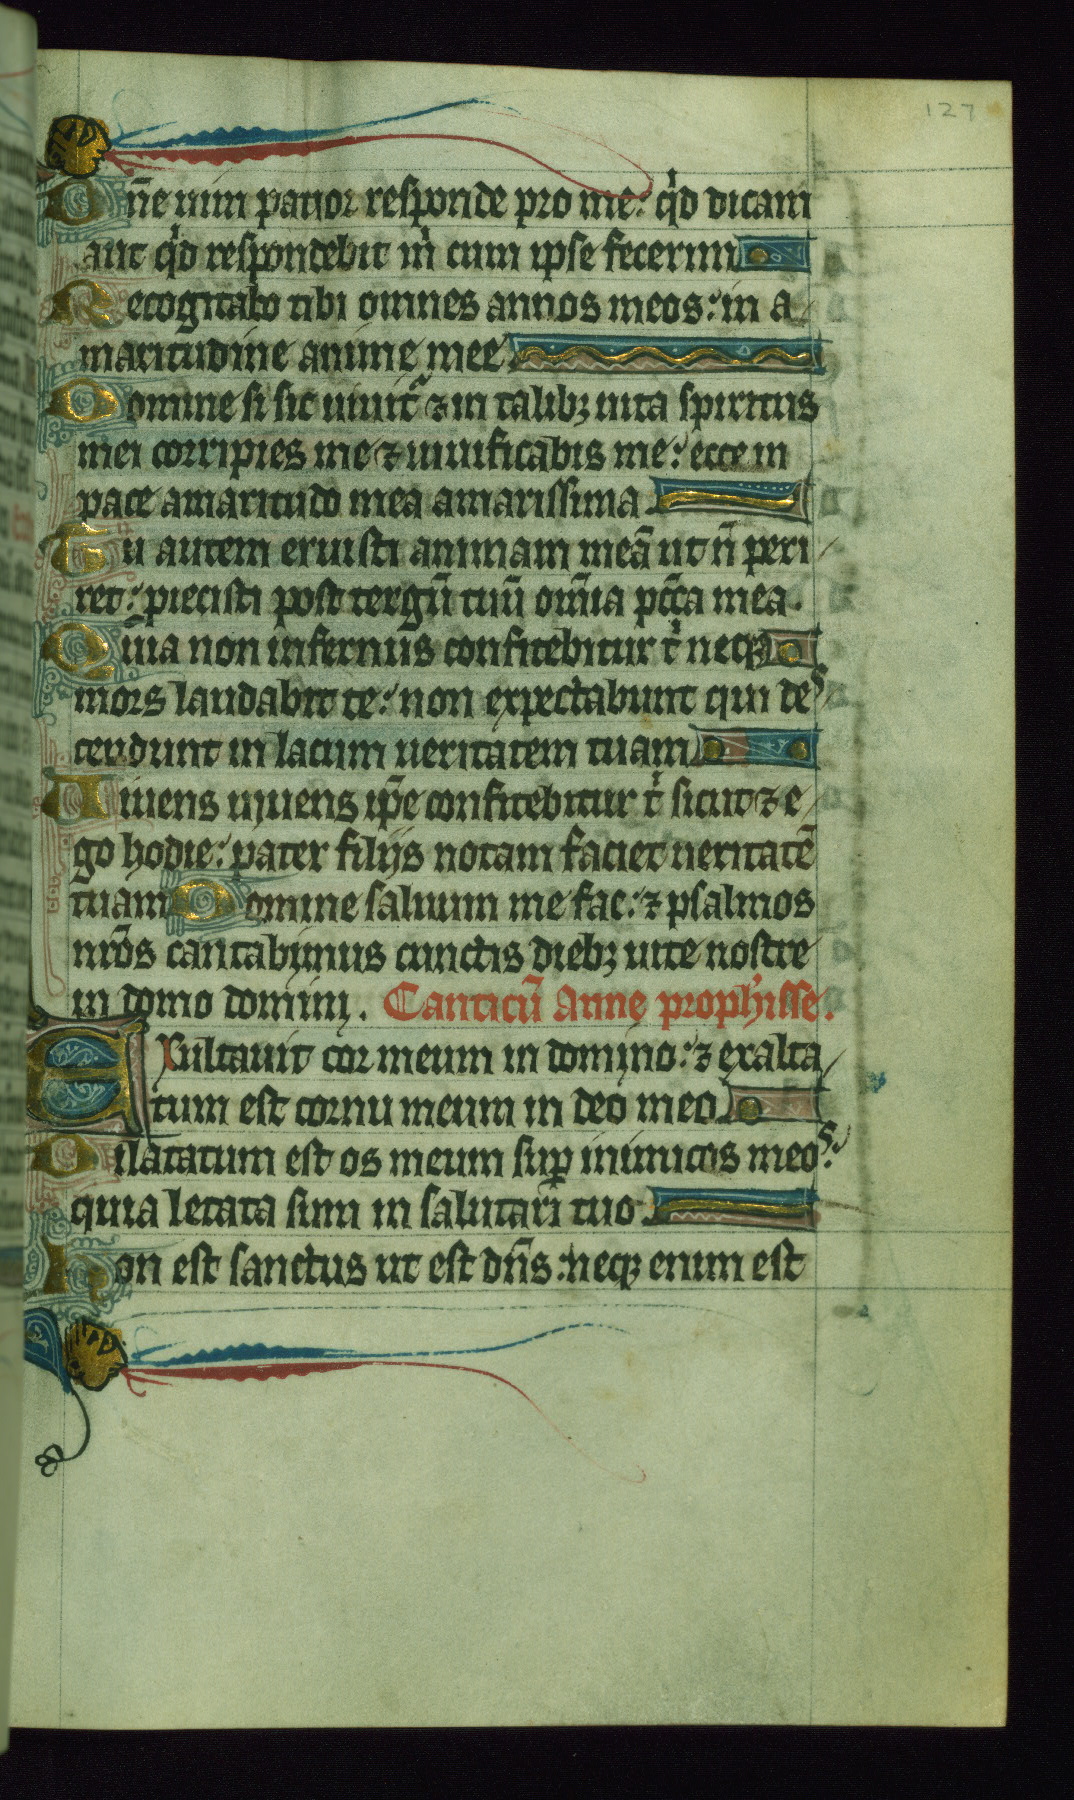 127
Dn̄e uim patior responde pro me: qͥd dicam
aut qͥd respondebit mͥ cum ipse fecerim
Recogitabo tibi omnes annos meos: in a
maritudine anime mee
Domine si sic uiuitᷣ ⁊ in talibꝫ uita spiritus
mei corripies me ⁊ uiuificabis me: ecce in
pace amaritudo mea amarissima
Tu autem eruisti animam meā ut n̄ peri
ret: piecisti post tergū tuū om̄ia pcc̄a mea.
Quia non infernus confitebitur tͥ neqꝫ
mors laudabit te: non expectabunt qui des
cendunt in lacum ueritatem tuam
Uiuens uiuens ip̄e confitebitur tͥ sicut ⁊ e
go hodie: pater filijs notam faciet ueritatē
tuam Domine saluum me fac: ⁊ psalmos
nr̄os cantabimus cunctis diebꝫ uite nostre
in domo domini. Canticū Anne prophisse.
EXultauit cor meum in domino: ⁊ exalta
tum est cornu meum in deo meo
Dilatatum est os meum suꝑ inimicos meos:
quia letata sum in salutari tuo
Non est sanctus ut est dn̄s: neqꝫ enim est